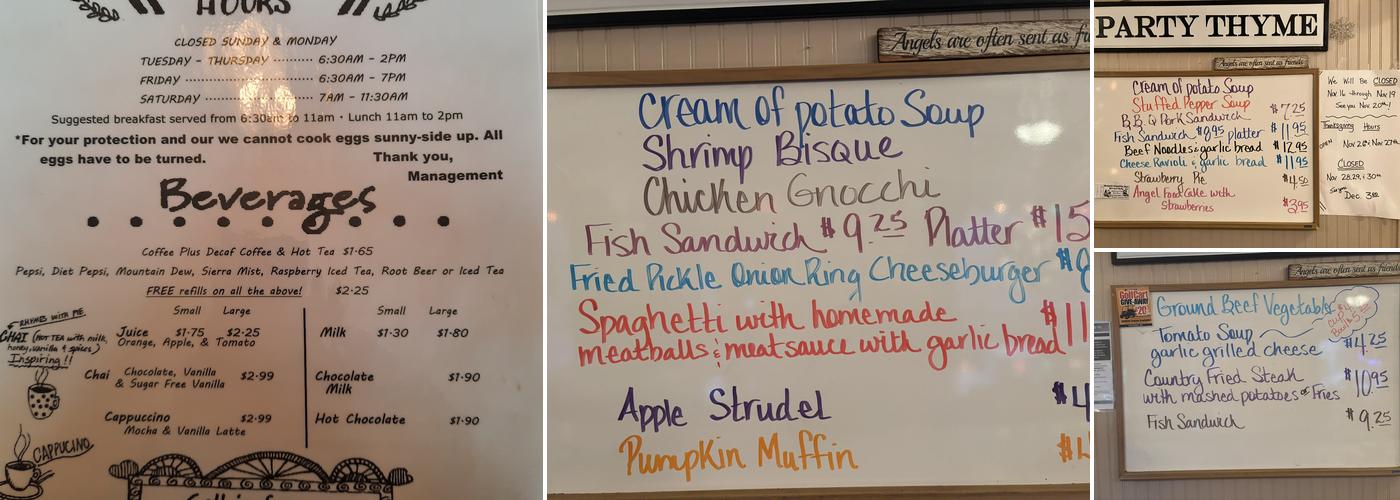 HOURS
CLOSED SUNDAY & MONDAY
TUESDAY - THURSDAY ............ 6:30AM - 2PM
FRIDAY ............ 6:30AM - 7PM
SATURDAY ............ 7AM - 11:30AM
Suggested breakfast served from 6:30am to 11am · Lunch 11am to 2pm
*For your protection and our we cannot cook eggs sunny-side up. All
eggs have to be turned. Thank you,
Management
Beverages
Coffee Plus Decaf Coffee & Hot Tea $1.65
Pepsi, Diet Pepsi, Mountain Dew, Sierra Mist, Raspberry Iced Tea, Root Beer or Iced Tea
FREE refills on all the above! $2.25
Small Large
Juice $1.75 $2.25
Orange, Apple, & Tomato
Chai Chocolate, Vanilla $2.99
& Sugar Free Vanilla
Cappuccino $2.99
Mocha & Vanilla Latte
Small Large
Milk $1.30 $1.80
Chocolate $1.90
Milk
Hot Chocolate $1.90
RHYMES WITH PIE
CHAI (HOT TEA with milk,
honey, vanilla & spices)
Inspiring!!
CAPPUCINO
Angels are often sent as
Cream of potato Soup
Shrimp Bisque
Chicken Gnocchi
Fish Sandwich $9.25 Platter $15
Fried Pickle Onion Ring Cheeseburger $
Spaghetti with homemade $11
meatballs & meatsauce with garlic bread
Apple Strudel $4
Pumpkin Muffin
PARTY THYME
Angels are often sent as friends
Cream of potato Soup
Stuffed Pepper Soup
B.B.Q Pork Sandwich $7.25
Fish Sandwich $8.95 platter $11.95
Beef Noodles & garlic bread $12.95
Cheese Ravioli & garlic bread $11.95
Strawberry Pie $4.50
Angel Food Cake with
Strawberries $3.95
We Will Be CLOSED
Nov 16 through Nov 19
See you Nov 20th!
Thanksgiving Hours
OPEN Nov 26 & Nov 27th
CLOSED
Nov 28.29.&30th
Dec. 3rd
Angels are often sent as friends
Golf Cart
GIVE-AWAY
Ground Beef Vegetable
Tomato Soup
garlic grilled cheese $4.25
Country Fried Steak
with mashed potatoes or Fries $10.95
Fish Sandwich $9.25